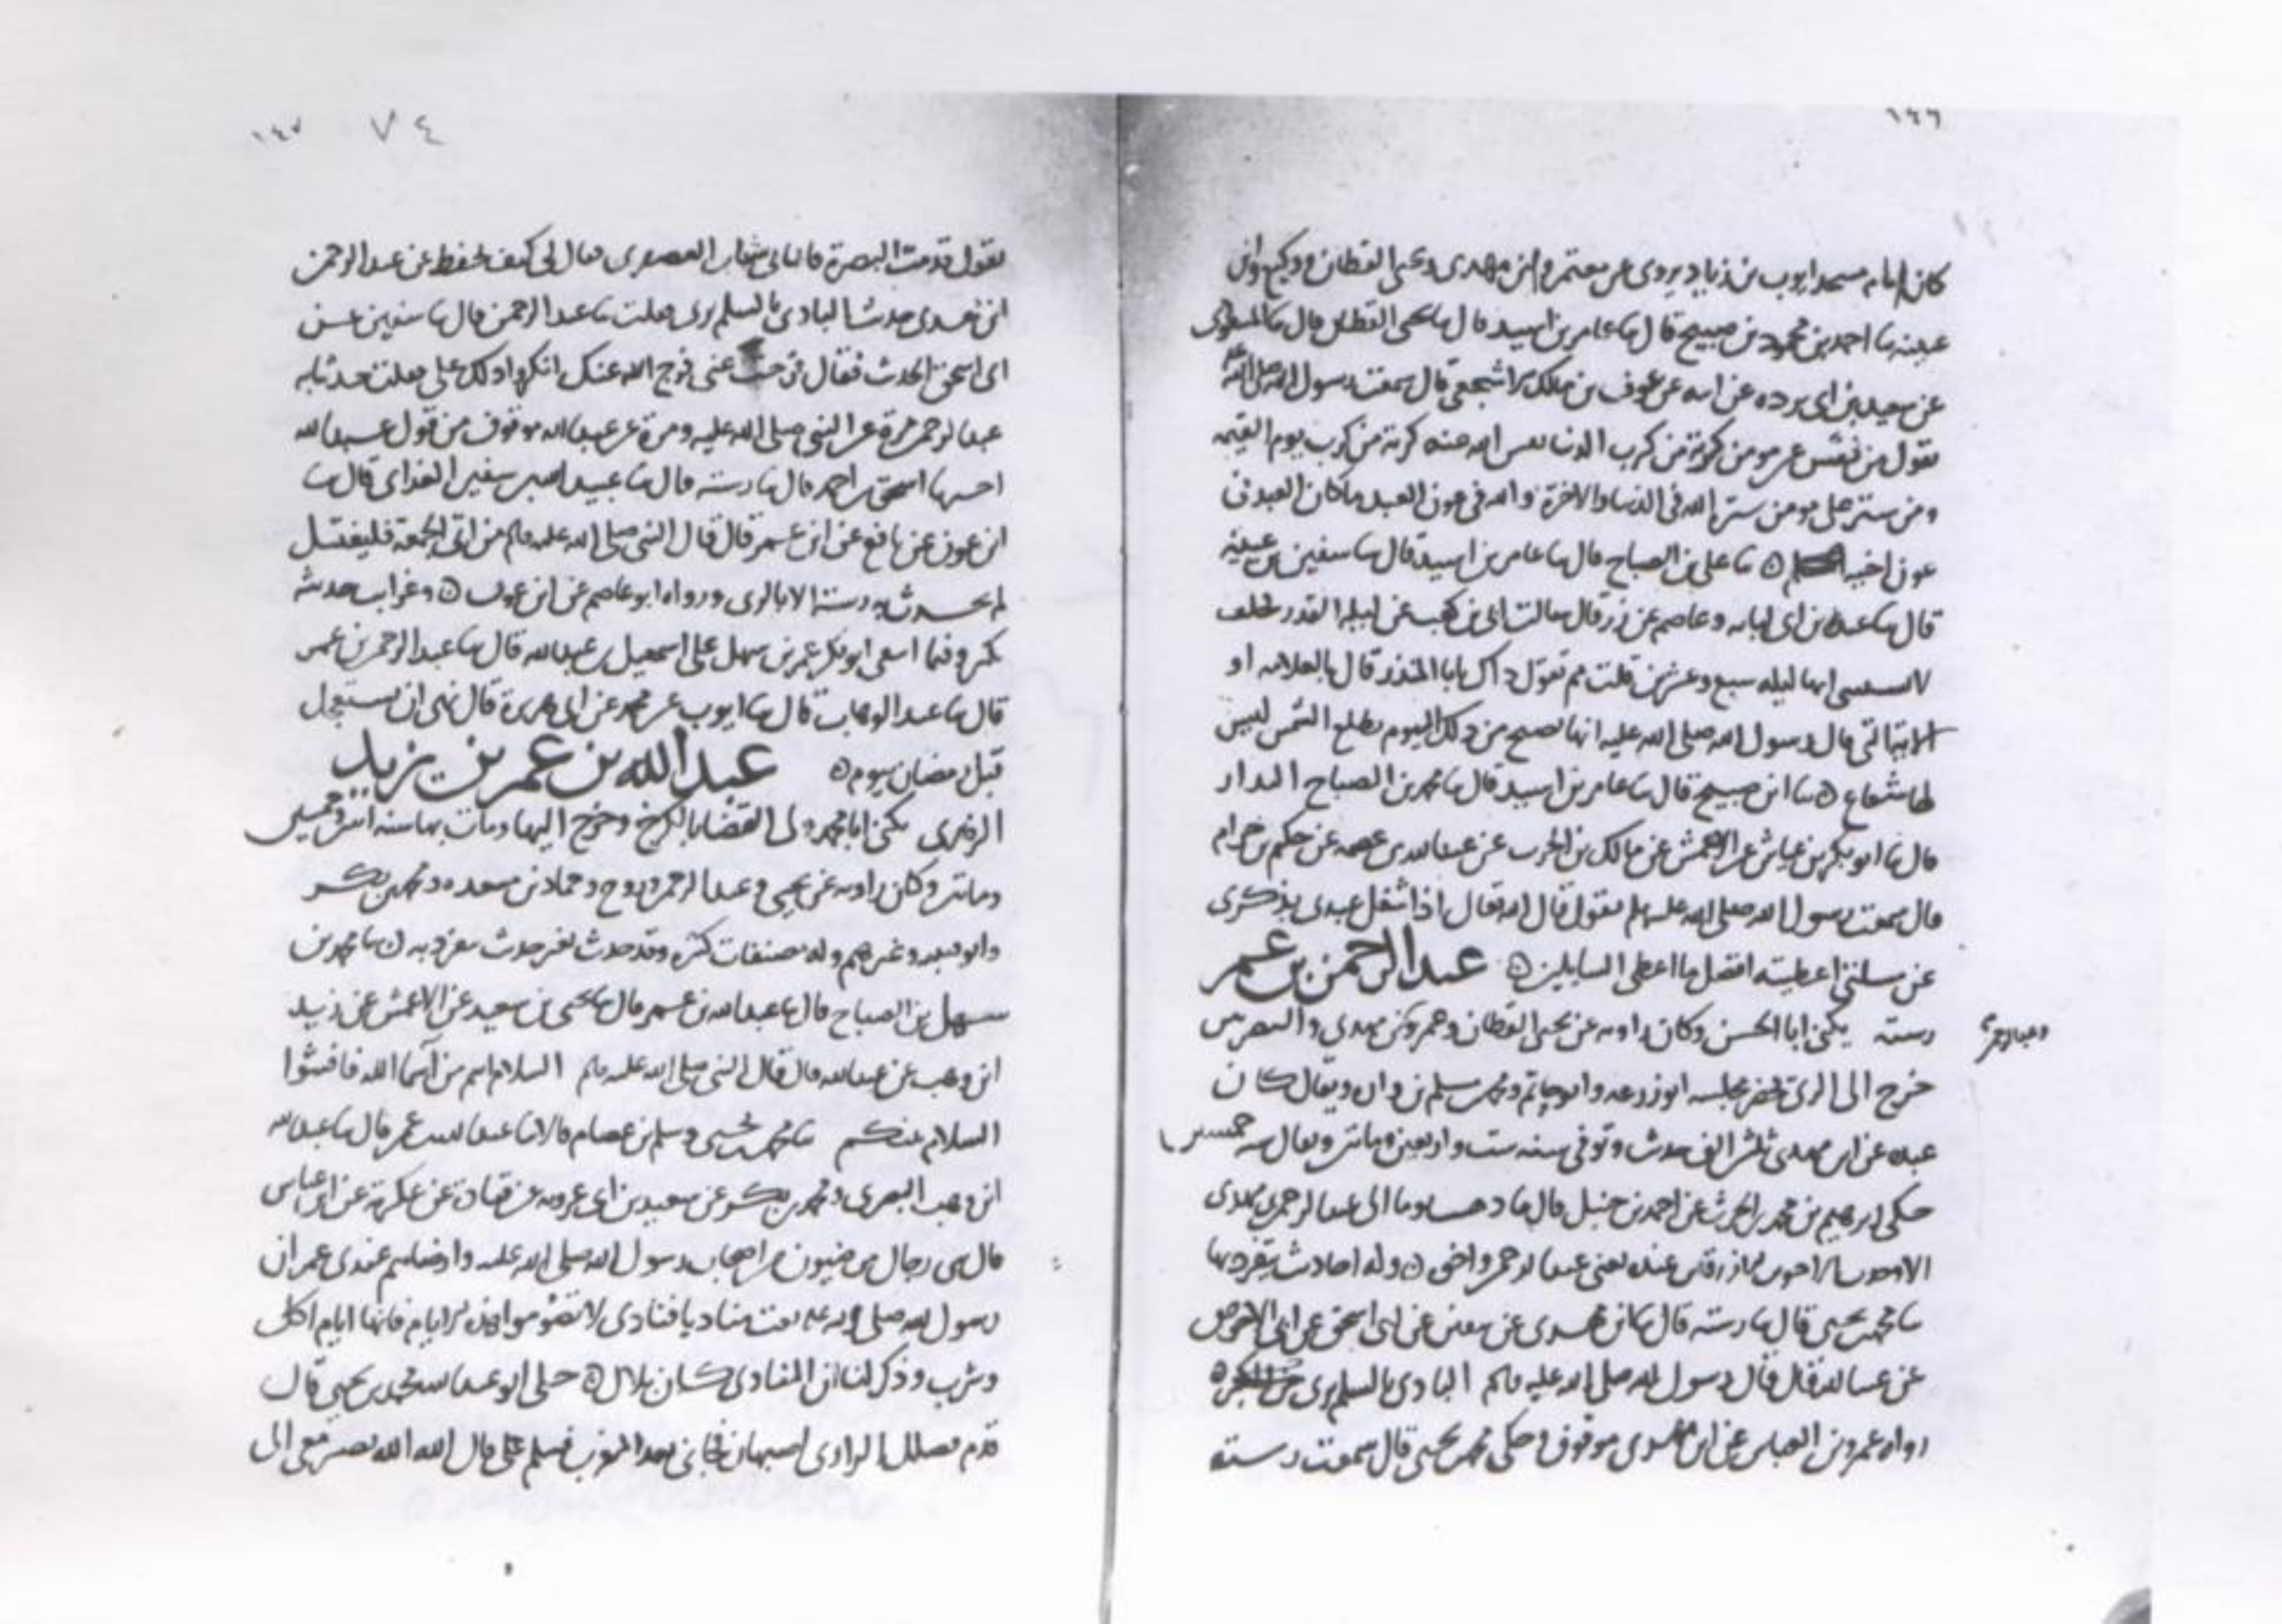 ١٤٦
كان امام مسجد ايوب بن زياد يروى عن معتمر وابن مهدى ويحيى القطان ووكيع وابن
عيينه ثنا احمد بن محمود بن صبيح قال ثنا عامر بن اسيد قال ثنا يحيى القطان قال ثنا
عن سعيد بن ابى برده عن ابيه عن عوف بن مالك الاشجعى قال سمعت رسول الله صلى الله
يقول من نفس عن مومن كربة من كرب الدنيا نفس الله عنه كربة من كرب يوم القيمه
ومن ستر على مومن ستره الله فى الدنيا والاخرة والله فى عون العبد ما كان العبد فى
عون اخيه ثنا على بن الصباح قال ثنا عامر بن اسيد قال ثنا سفين بن عيينة
قال ثنا عبدة بن ابى لبابه وعاصم عن زر قال سالت ابى بن كعب عن ليلة القدر فحلف
لا يستثنى انها ليله سبع وعشرين قلت بم تقول ذاك يابا المنذر قال بالعلامه او
بالاية التى قال رسول الله صلى الله عليه انها تصبح من ذلك اليوم تطلع الشمس ليس
لها شعاع ثنا ابن صبيح قال ثنا عامر بن اسيد قال ثنا محمد بن الصباح
قال ثنا ابو بكر بن عياش عن الاعمش عن مالك بن الحرث عن عبد الله بن عصمه عن حكيم بن حزام
قال سمعت رسول الله صلى الله عليه وسلم يقول قال الله تعالى اذا شغل عبدى بذكرى
عن مسلتى اعطيته افضل ما اعطى السايلين عبد الرحمن بن عمر
رسته يكنى ابا الحسن وكان راويه عن يحيى القطان وعمر وابن مهدى والبصريين
خرج الى الرى فحضر مجلسه ابو زرعه وابو حاتم ومحمد بن مسلم بن واره ويقال كان
عنده عن ابن مهدى ثلثين الف حديث وتوفى سنه ست واربعين وماتين ويقال سنه خمسين
حكى ابرهيم بن محمد بن الحرث عن احمد بن حنبل قال ما ذهبت يوما الى عبد الرحمن بن مهدى
الا وجدت الاخوين الازرقين عنده يعنى عبد الرحمن واخى وله احاديث يتفرد بها
ثنا محمد بن يحيى قال ثنا رسته قال ثنا ابن مهدى عن سفين عن ابى اسحق عن ابى الاحوص
عن عبد الله قال قال رسول الله صلى الله عليه وسلم البادى بالسلم برى من الكبر
رواه عمرو بن العباس عن ابن مهدى موقوف وحكى محمد بن يحيى قال سمعت رسته
٧٤
١٤٧
يقول قدمت البصرة فاتانى شباب العصفرى فقال لى كيف تحفظ عن عبد الرحمن
ابن مهدى حديث البادى بالسلم برى فقلت ثنا عبد الرحمن قال ثنا سفين عن
ابى اسحق الحديث فقال فرجت عنى فرج الله عنك انكروا ذلك على فقلت حدثنا به
عبد الرحمن مرة عن النبى صلى الله عليه ومرة عن عبد الله موقوف من قول عبد الله
اخبرنا اسحق بن احمد قال ثنا رسته قال ثنا عبيد الله بن سفين الغدانى قال ثنا
ابن عون عن نافع عن ابن عمر قال قال النبى صلى الله عليه وسلم من اتى الجمعة فليغتسل
لم يحدث به رسته الا بالرى ورواه ابو عاصم عن ابن عون وغرايب حديثه
تكثر وفيما املى ابو بكر عمر بن سهل على اسمعيل بن عبد الله قال ثنا عبد الرحمن بن عمر
قال ثنا عبد الوهاب قال ثنا ايوب عن محمد عن ابى هريرة قال نهى ان يستعجل
قبل رمضان بيوم عبد الله بن عمر بن يزيد
الزهرى يكنى ابا محمد ولى القضا بالكرخ وخرج اليها ومات بها سنه اثنين وخمسين
وماتين وكان راويه عن يحيى وعبد الرحمن وروح وحماد بن مسعده ومحمد بن بكر
وابو قتيبه وغيرهم وله مصنفات كثيره وقد حدث بغير حديث يتفرد به ثنا محمد بن
سهل بن الصباح قال ثنا عبد الله بن عمر قال ثنا يحيى بن سعيد عن الاعمش عن زيد
ابن وهب عن عبد الله قال قال النبى صلى الله عليه وسلم السلام اسم من اسما الله فافشوا
السلام بينكم ثنا محمد بن يحيى وسلم بن عصام قالا ثنا عبد الله بن عمر قال ثنا عبد الله
ابن وهب البصرى ومحمد بن بكر عن سعيد بن ابى عروبه عن قتادة عن عكرمة عن ابن عباس
قال ثنى رجال مرضيون من اصحاب رسول الله صلى الله عليه وارضاهم عندى عمر ان
رسول الله صلى الله عليه بعث مناديا فنادى لا تصوموا هذه الايام فانها ايام اكل
وشرب وذكر لنا ان المنادى كان بلال حكى ابو عبد الله محمد بن يحيى قال
قدم فضلك الرازى اصبهان فجانى بعد المغرب فسلم على قال الله الله تصير معى الى